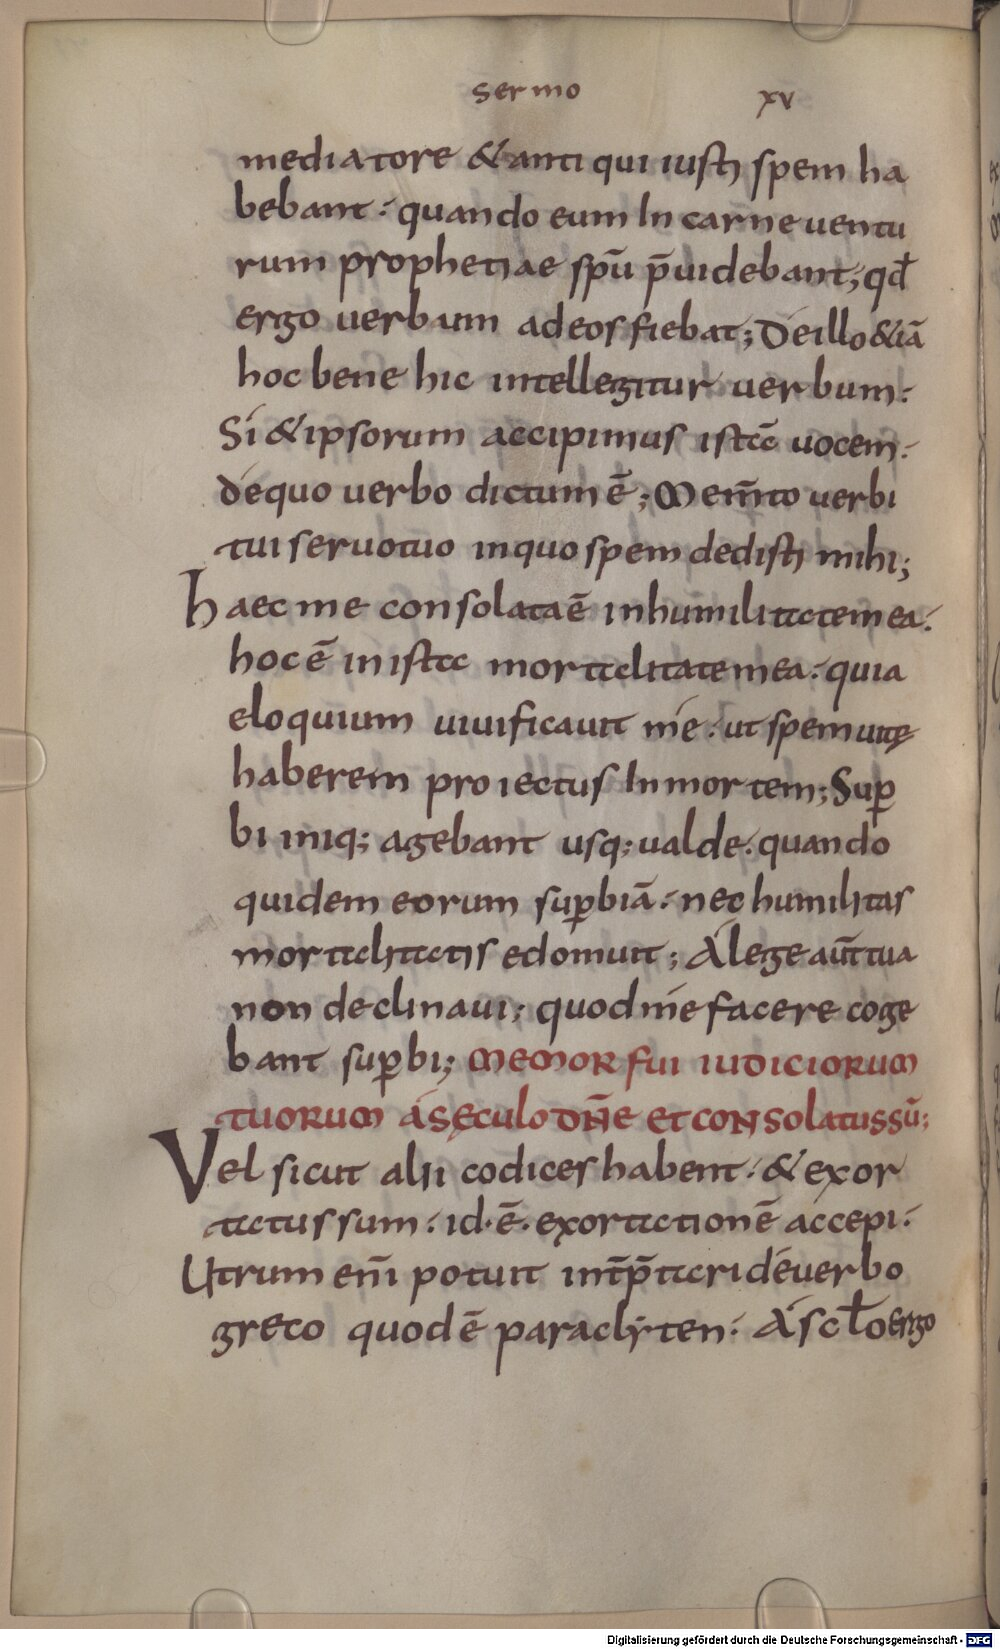 sermo xv
mediatore & antiqui iusti spem ha
bebant: quando eum In carne uentu
rum prophetiae spū p̄uidebant; qđ
ergo uerbum ad eos fiebat; De illo &iā
hoc bene hic intellegitur uerbum:
Si & ipsorum accipimus istā uocem:
de quo uerbo dictum ē; Mem̄to uerbi
tui seruo tuo in quo spem dedisti mihi;
haec me consolata ē in humilitate mea:
hoc ē in ista mortalitate mea: quia
eloquium uiuificauit me: ut spem uitę
haberem proiectus In mortem; Suꝑ
bi iniq; agebant usq; ualde. quando
quidem eorum suꝑbiā: nec humilitas
mortalitatis edomuit; A lege aūt tua
non declinaui: quod me facere coge
bant suꝑbi; MEMOR fui IUDICIORUM
TUORUM A SĘCULO DN̄E ET CONSOLATUS SŪ;
Vel sicut alii codices habent: & exor
tatus sum: id·ē· exortationē accepi:
Utrum eni̅ potuit int̄p̄tari de uerbo
greco quod ē paraclyten: A sc̄lo ergo
Digitalisierung gefördert durch die Deutsche Forschungsgemeinschaft - DFG